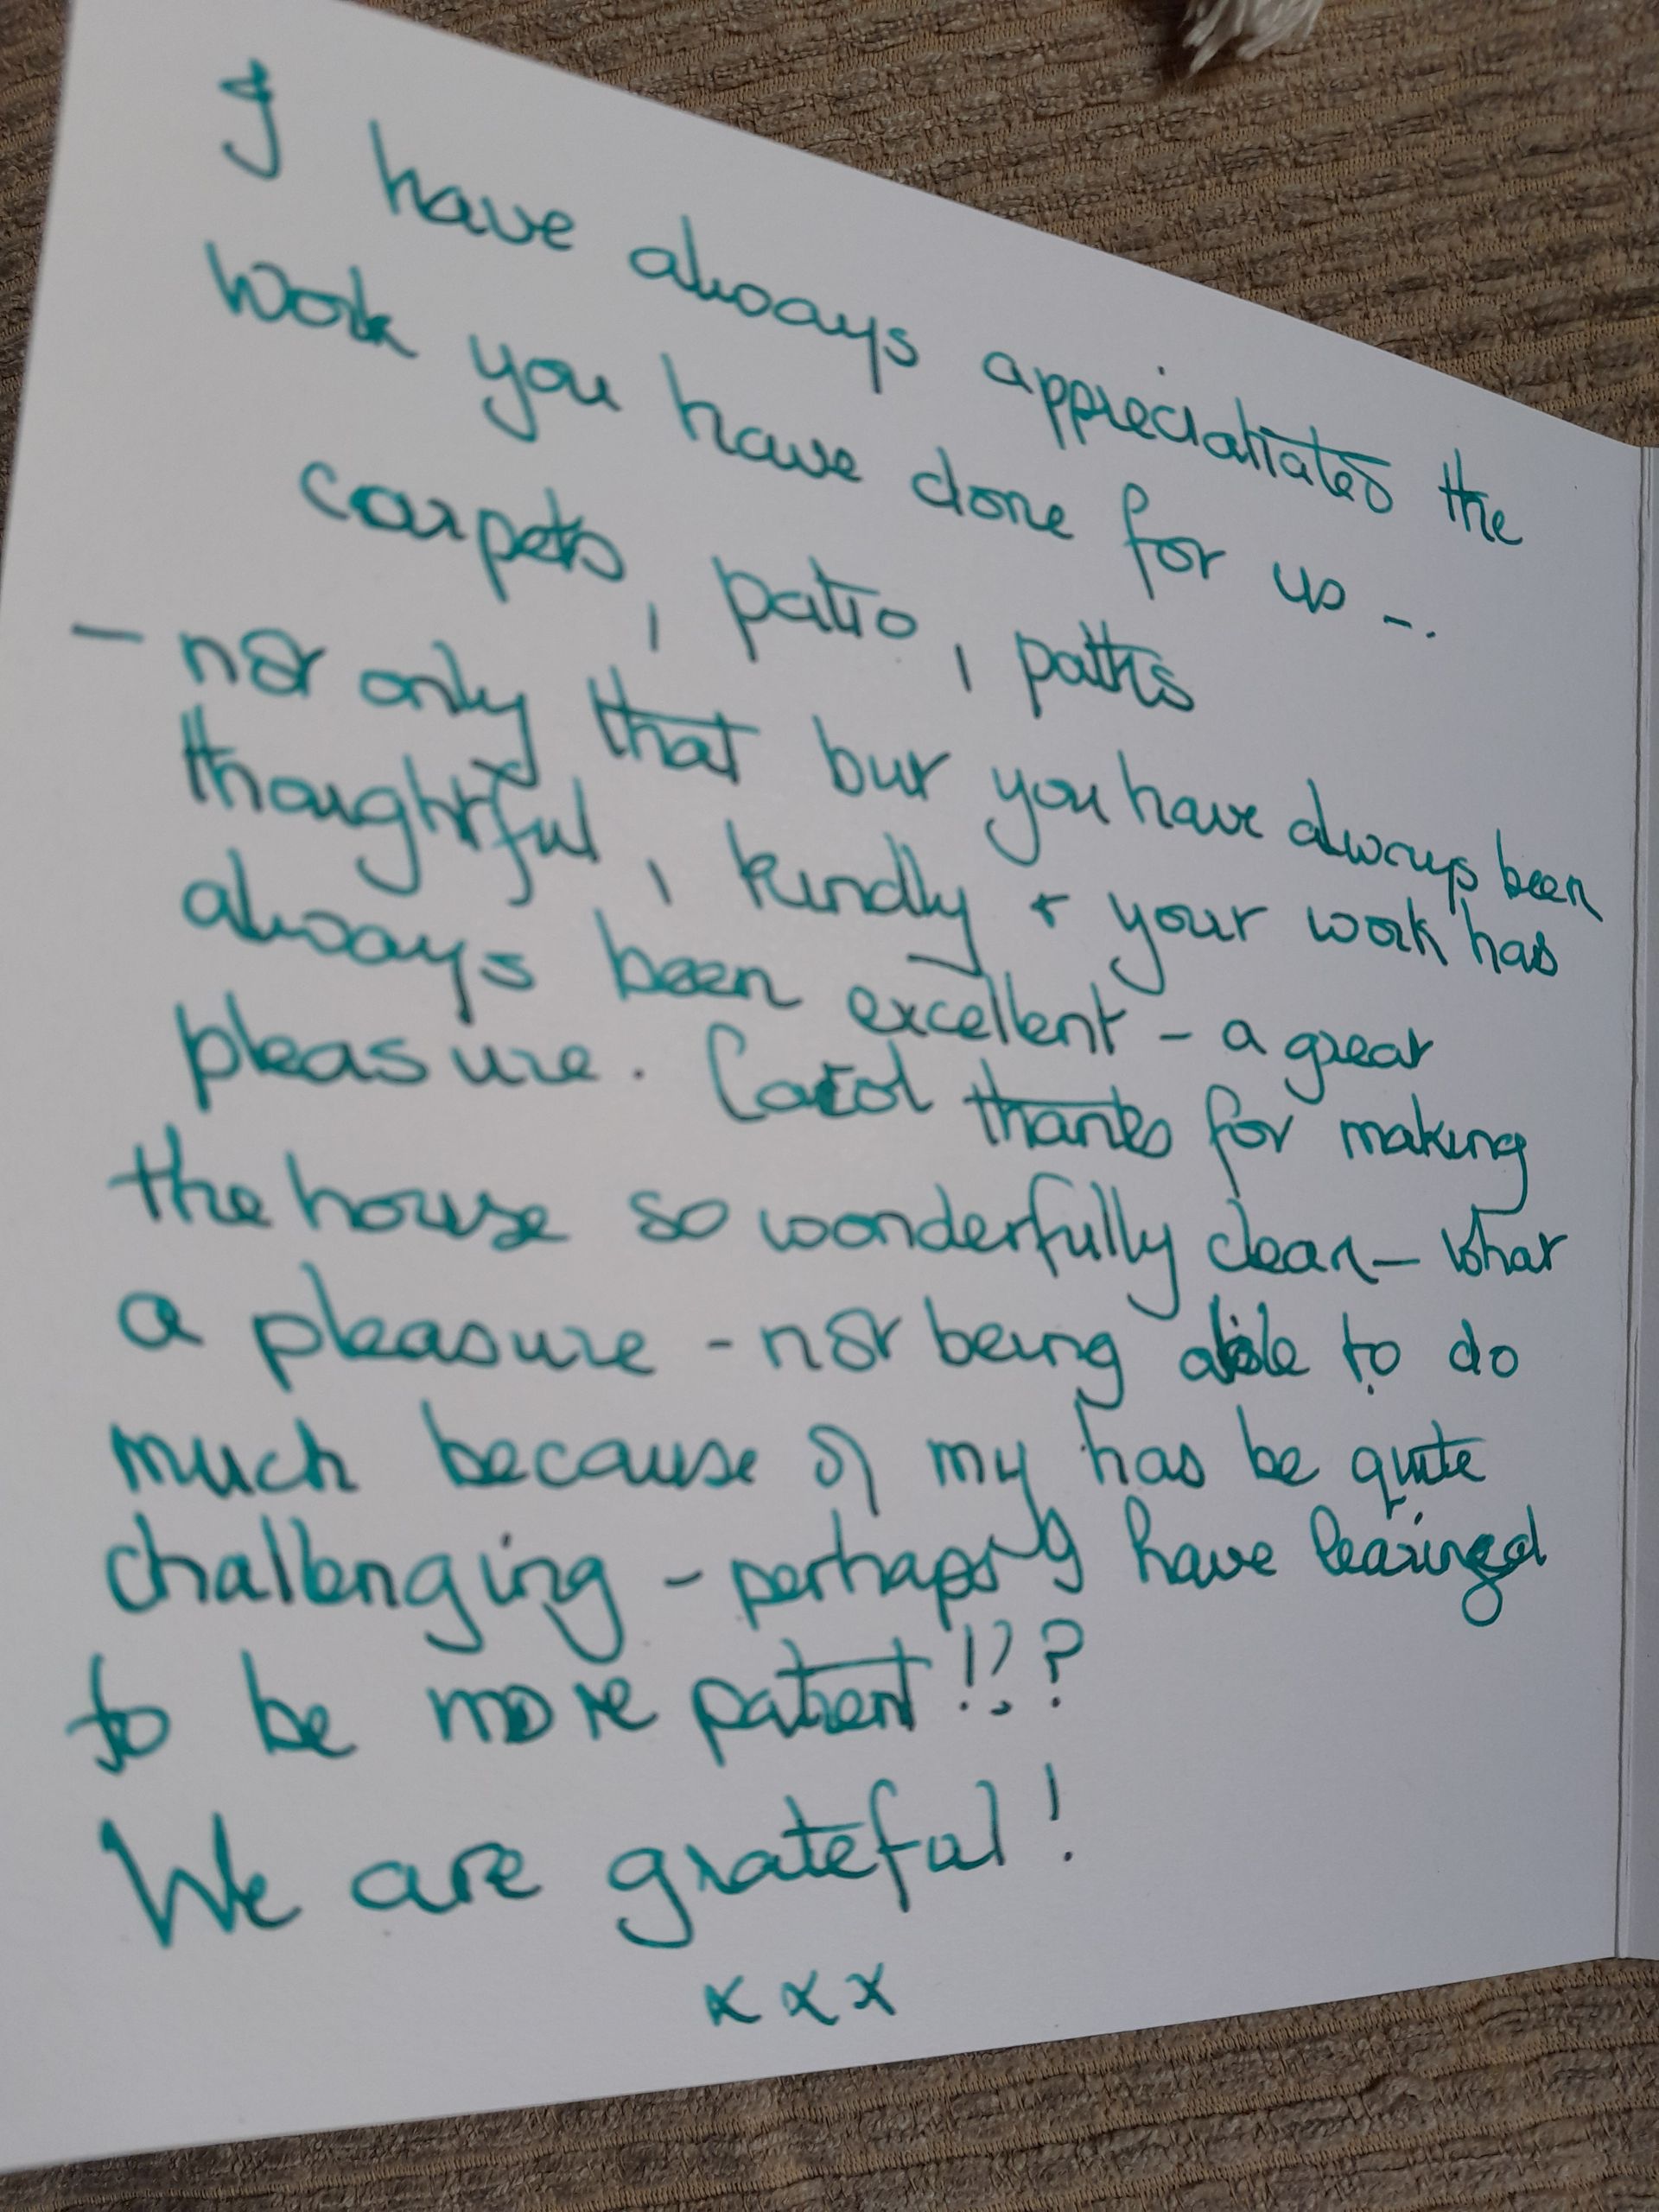 I have always appreciatiated the
work you have done for us -.
carpets, patio, paths
- not only that but you have always been
thoughtful, kindly + your work has
always been excellent - a great
pleasure. Carol thanks for making
the house so wonderfully clean - what
a pleasure - not being able to do
much because of my has be quite
challenging - perhaps I have learinged
to be more patient!!?
We are grateful!
xxx